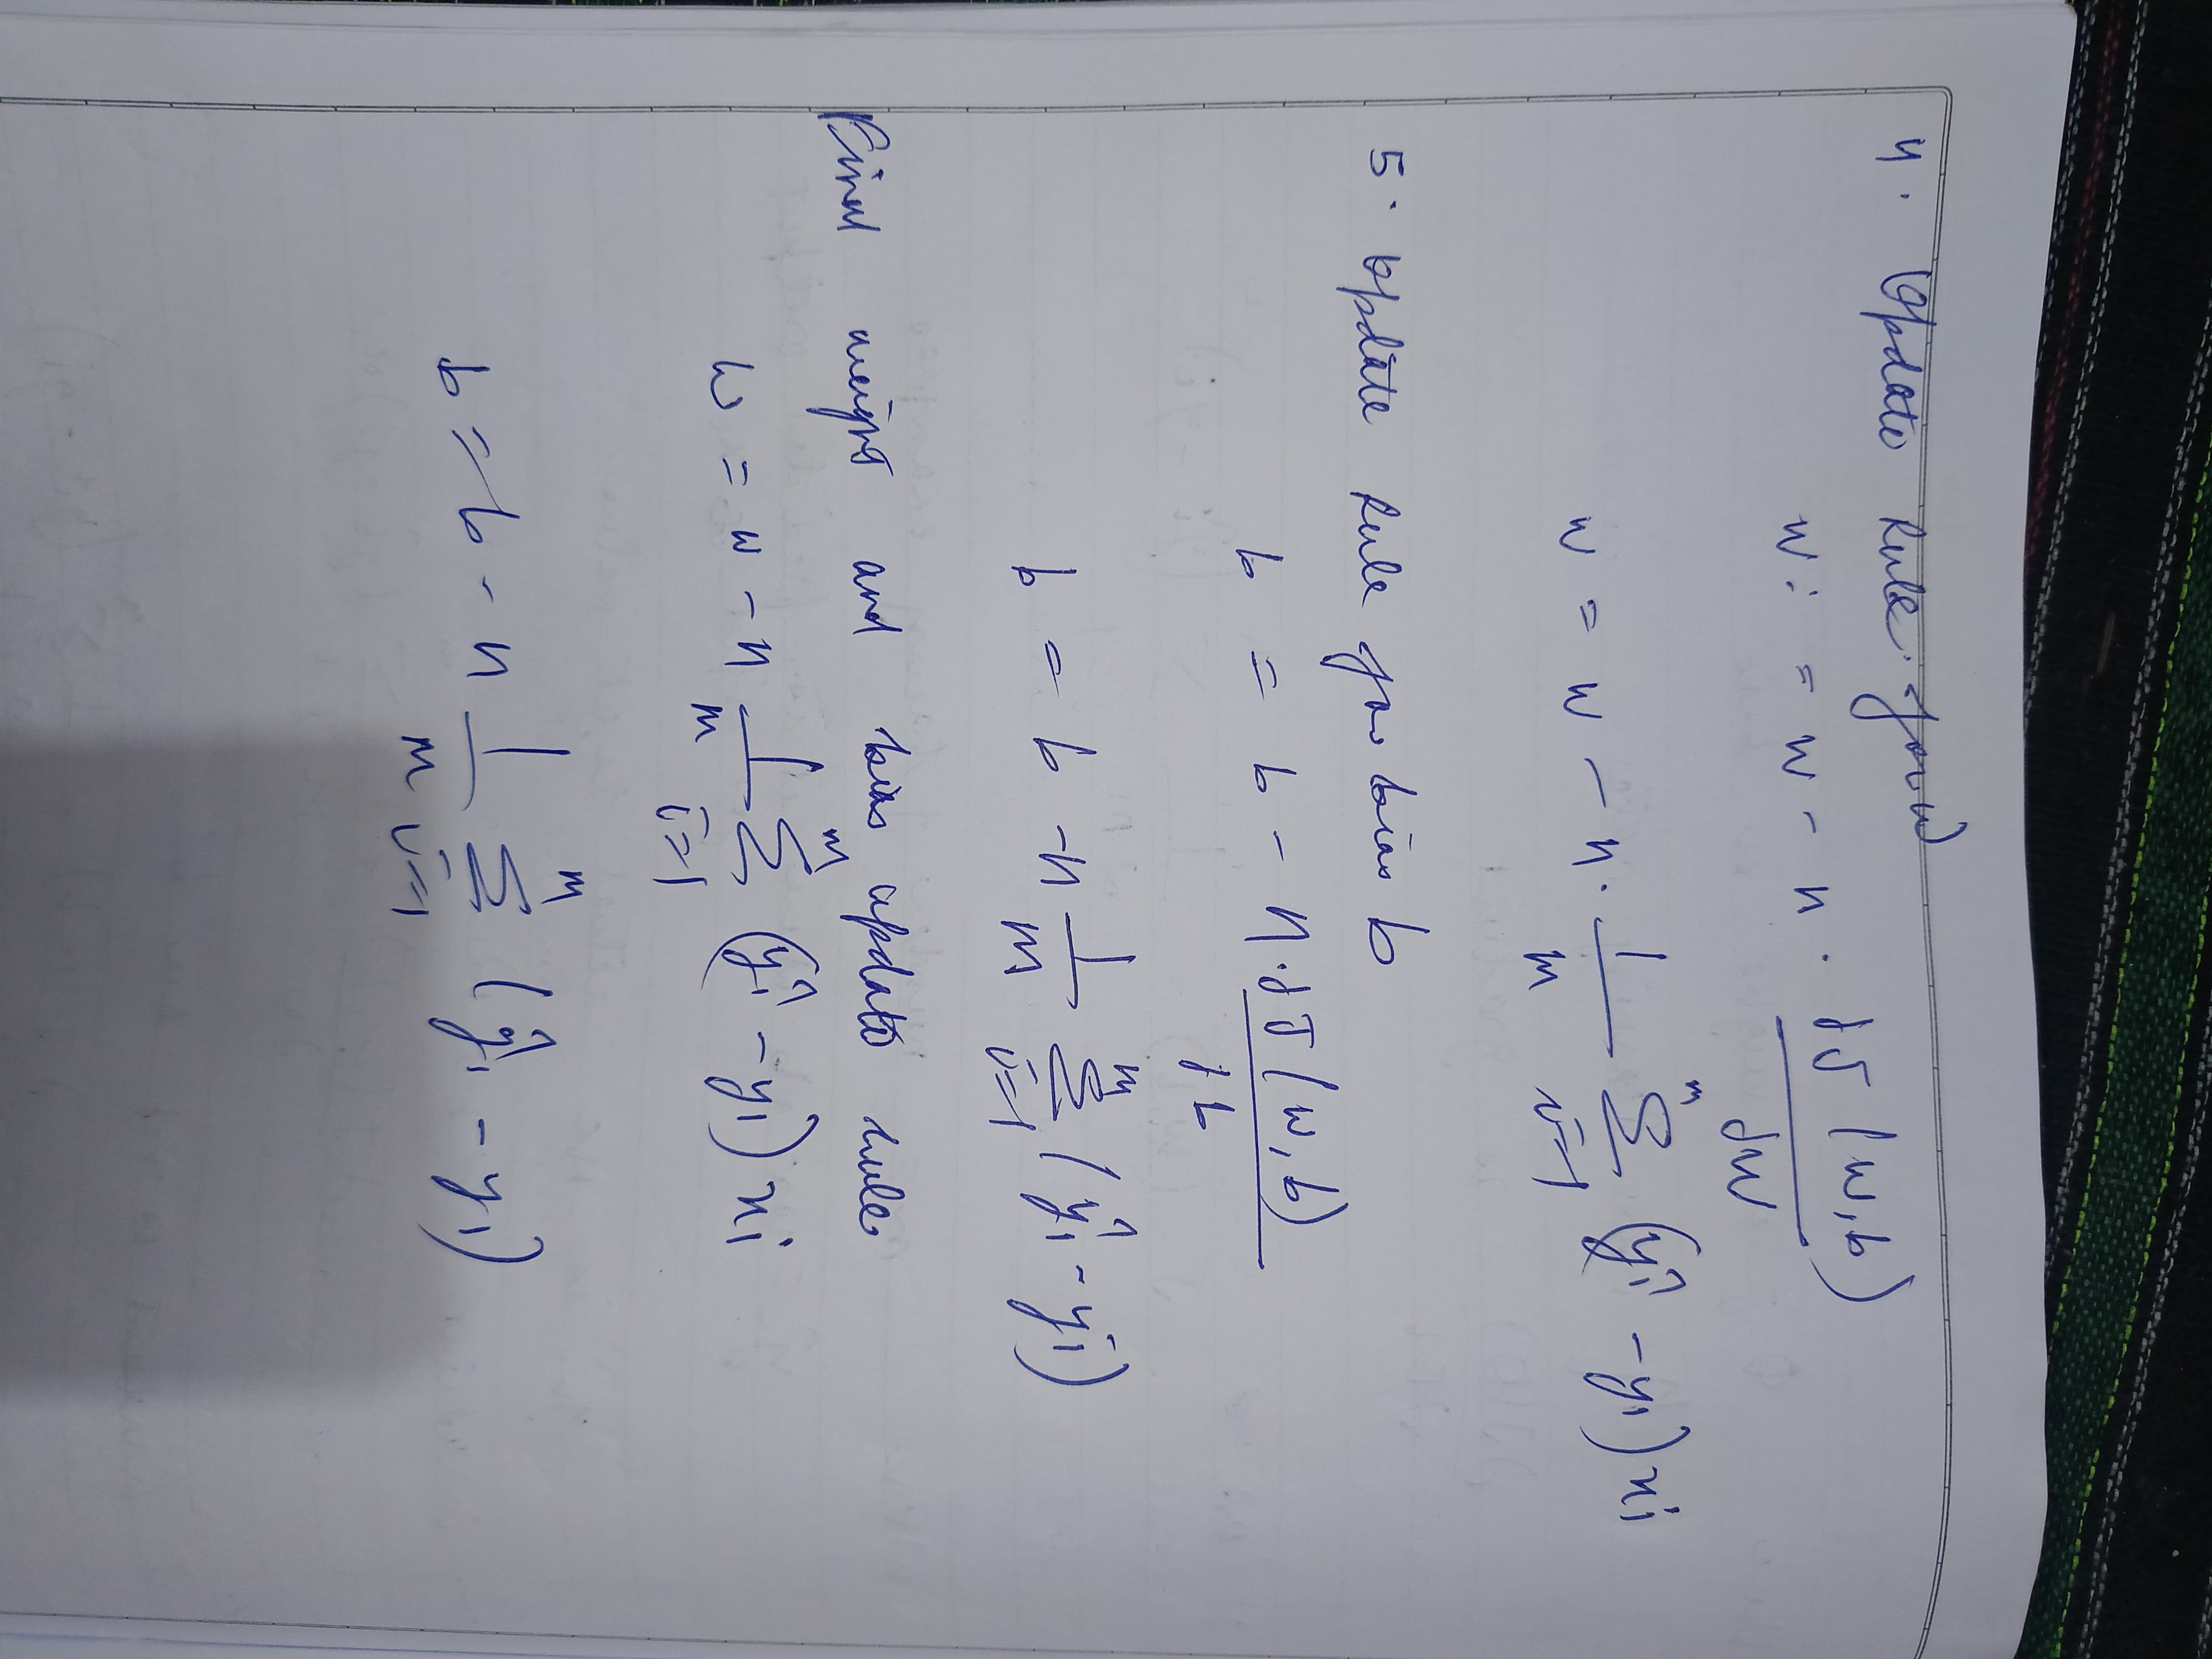 4. Update Rule for w
w := w - η · ∂J(w,b) / ∂w
w = w - η · 1/m Σ_{i=1}^{m} (ŷi - yi) xi
5. Update Rule for bias b
b = b - η · ∂J(w,b) / ∂b
b = b - η 1/m Σ_{i=1}^{m} (ŷi - yi)
Final weight and bias update rule
w = w - η 1/m Σ_{i=1}^{m} (ŷi - yi) xi
b = b - η 1/m Σ_{i=1}^{m} (ŷi - yi)